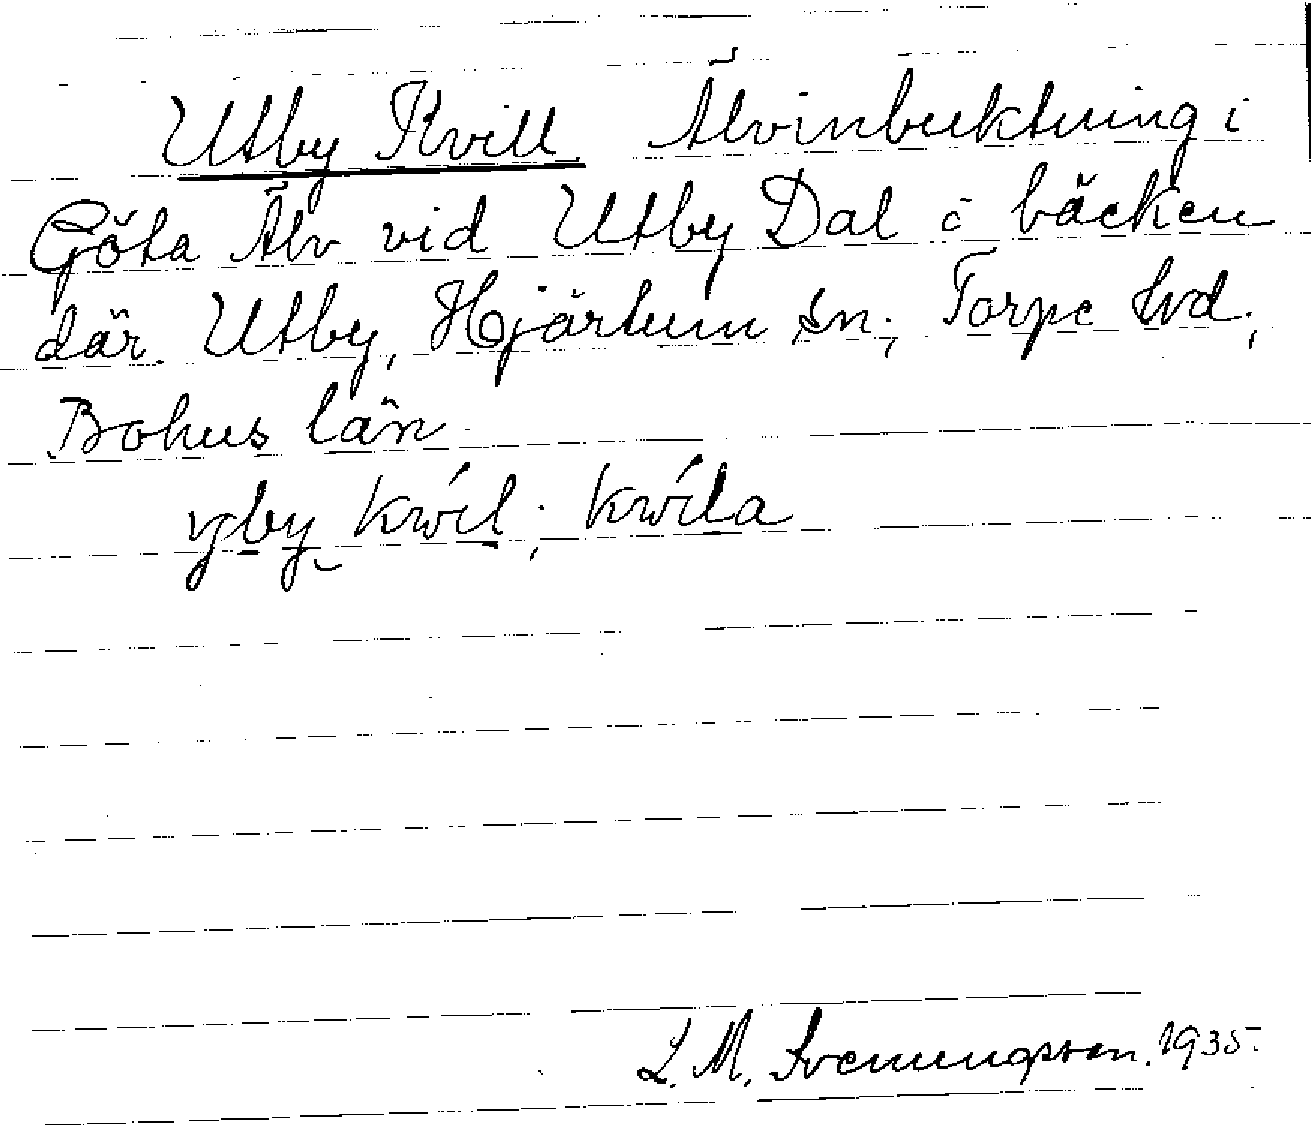 Utby Kvill Älvinbuktning i
Göta Älv vid Utby Dal o bäcken
där. Utby, Hjärtum sn; Torpe hd,
Bohus län
kwil; kwila
L. M. Svenungsson. 1935.